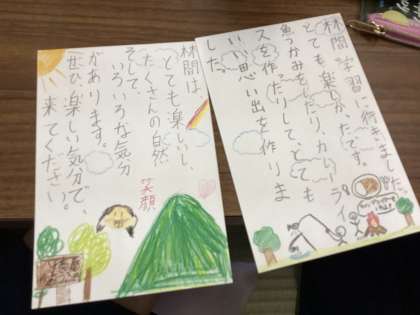 林間学習に行きました。
とても楽しかったです。
魚つかみをしたり、カレーライ
スを作ったりして、とても
いい思い出を作りま
した。
林間は、
とても楽しいし、
たくさんの自然
そして、
いろいろな気分
があります。
ぜひ、楽しい気分で、
来てください。
笑顔